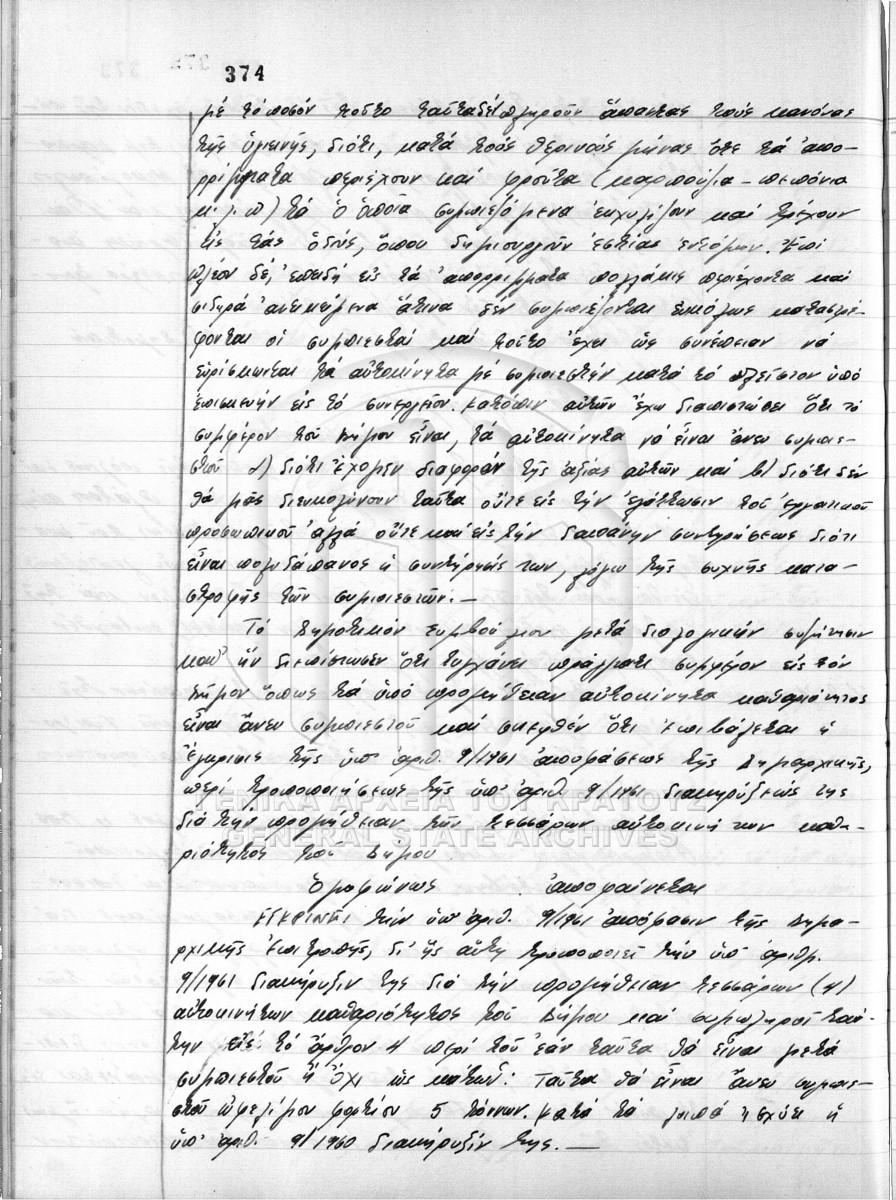 374
μέ τό ποσόν τοῦτο ταῦτα δέν πληροῦν ἅπαντας τούς κανόνας
τῆς ὑγιεινῆς, διότι, κατά τούς θερινούς μῆνας ὅτε τά ἀπο-
ρρίμματα περιέχουν καί φροῦτα (καρπούζια - πεπόνια
κ.λ.π) τά ὁποῖα συμπιεζόμενα ἐκχυλίζουν καί τρέχουν
εἰς τάς ὁδούς, ὅπου δημιουργοῦν ἑστίας ἐντόμων. Ἐπί
πλέον δέ, ἐπειδή εἰς τά ἀπορρίμματα πολλάκις περιέχονται καί
σιδηρᾶ ἀντικείμενα ἅτινα δέν συμπιέζονται εὐκόλως καταστρέ-
φονται οἱ συμπιεσταί καί τοῦτο ἔχει ὡς συνέπειαν νά
εὑρίσκωνται τά αὐτοκίνητα μέ συμπιεστήν κατά τό πλεῖστον ὑπό
ἐπισκευήν εἰς τό συνεργεῖον. Κατόπιν αὐτῶν ἔχω διαπιστώσει ὅτι τό
συμφέρον τοῦ Δήμου εἶναι, τά αὐτοκίνητα νά εἶναι ἄνευ συμπιε-
στοῦ α) διότι ἔχομεν διαφοράν τῆς ἀξίας αὐτῶν καί β) διότι δέν
θά μᾶς διευκολύνουν ταῦτα οὔτε εἰς τήν ἐλάττωσιν τοῦ ἐργατικοῦ
προσωπικοῦ ἀλλά οὔτε καί εἰς τήν δαπάνην συντηρήσεως διότι
εἶναι πολυδάπανος ἡ συντήρησίς των, λόγω τῆς συχνῆς κατα-
στροφῆς τῶν συμπιεστῶν.—
Τό Δημοτικόν Συμβούλιον μετά διαλογικήν συζήτησιν
καθ' ἥν διεπίστωσεν ὅτι τυγχάνει πράγματι συμφέρον εἰς τόν
Δῆμον ὅπως τά ὑπό προμήθειαν αὐτοκίνητα καθαριότητος
εἶναι ἄνευ συμπιεστοῦ καί σκεφθέν ὅτι ἐπιβάλεται ἡ
ἔγκρισις τῆς ὑπ' ἀριθ. 9/1961 ἀποφάσεως τῆς Δημαρχικῆς,
περί τροποποιήσεως τῆς ὑπ' ἀριθ 9/1961 διακηρύξεώς της
διά τήν προμήθειαν τῶν τεσσάρων αὐτοκινήτων καθα-
ριότητος τοῦ Δήμου
Ὁμοφώνως ἀποφαίνεται
ΕΓΚΡΙΝΕΙ τήν ὑπ' ἀριθ. 9/1961 ἀπόφασιν τῆς Δημα-
ρχικῆς Ἐπιτροπῆς, δι' ἧς αὕτη τροποποιεῖ τήν ὑπ' ἀριθμ.
9/1961 διακήρυξίν της διά τήν προμήθειαν τεσσάρων (4)
αὐτοκινήτων καθαριότητος τοῦ Δήμου καί συμπληροῖ ταύ-
την εἰς τό ἄρθρον 4 περί τοῦ ἐάν ταῦτα θά εἶναι μετά
συμπιεστοῦ ἤ ὄχι ὡς κάτωθι: Ταῦτα θά εἶναι ἄνευ συμπιε-
στοῦ ὠφελίμου φορτίου 5 τόννων. Κατά τά λοιπά ἰσχύει ἡ
ὑπ' ἀριθ. 9/1960 διακήρυξίν της.—
ΓΕΝΙΚΑ ΑΡΧΕΙΑ ΤΟΥ ΚΡΑΤΟΥΣ
GENERAL STATE ARCHIVES